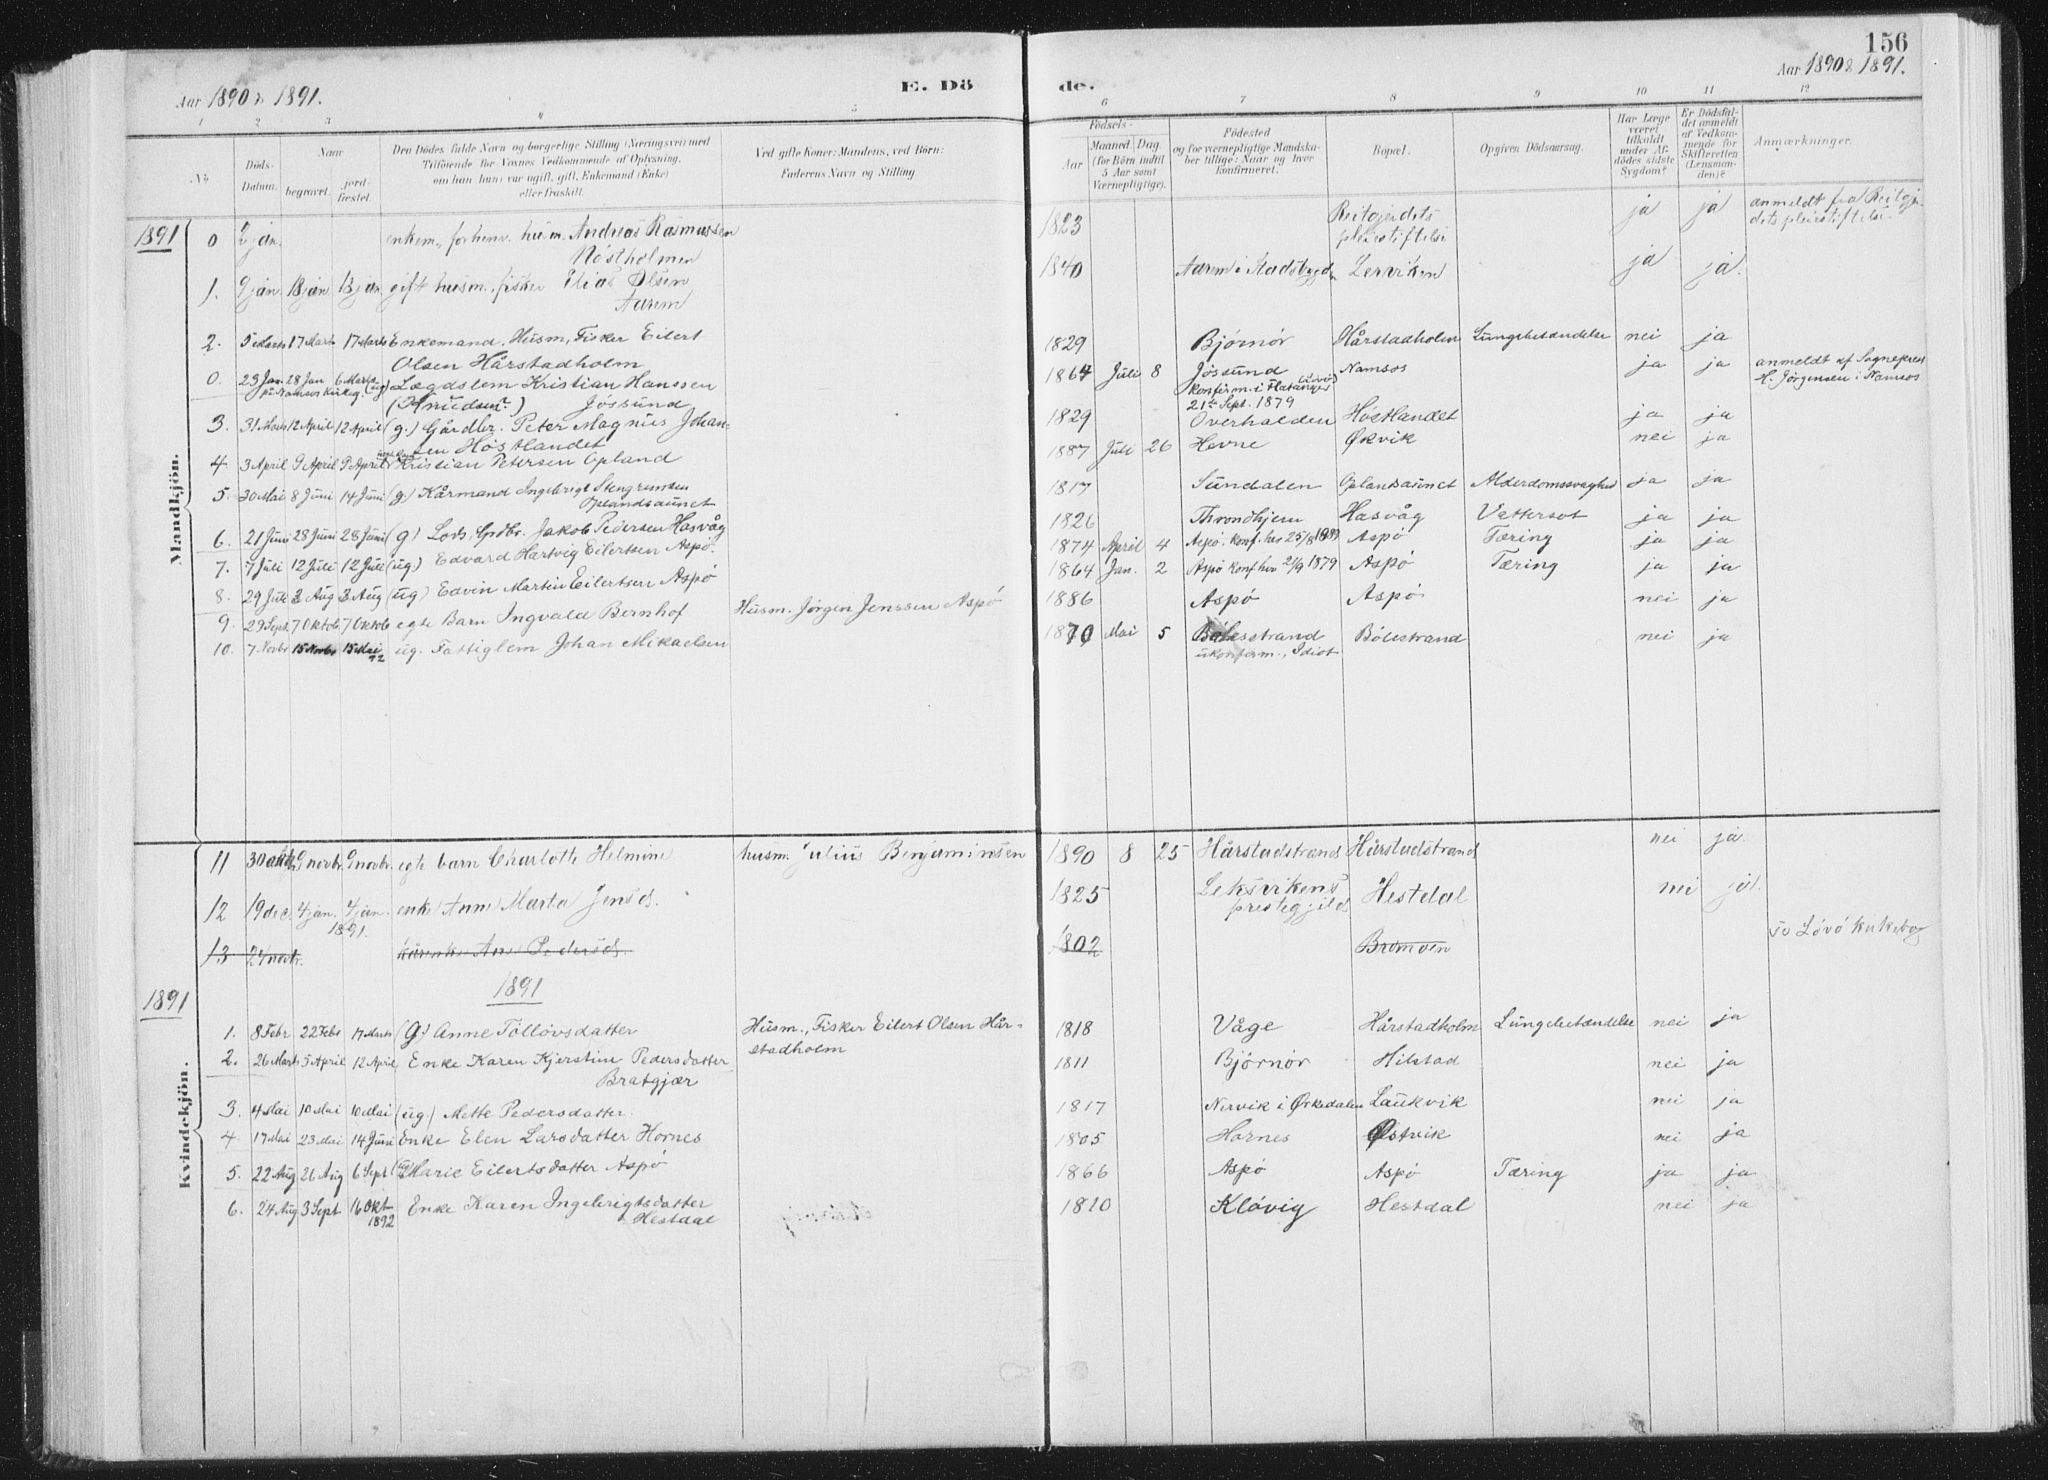 156
Aar 1890 & 1891.
E. Dö de.
Aar 1890 & 1891.
1 2 3 4 5 6 7 8 9 10 11 12
No
Döds-Datum.
Naar
begravet.
jord-fæstet.
Den Dödes fulde Navn og borgerlige Stilling (Næringsvei) med
Tilföiende for Voxnes Vedkommende af Oplysning,
om han (hun) var ugift, gift, Enkemand (Enke)
eller fraskilt.
Ved gifte Koner: Mandens, ved Börn:
Faderens Navn og Stilling
Födsels-
Aar
Maaned. Dag.
(for Börn indtil
5 Aar samt
Værnepligtige).
Födested
og for værnepligtige Mandska-
ber tillige: Naar og hvor
konfirmeret.
Bopæl.
Opgiven Dödsaarsag.
Har Læge
været
tilkaldt
under Af-
dödes sidste
Sygdom?
Er Dödsfal-
det anmeldt
af Vedkom-
mende for
Skifteretten
(Lensman-
den)?
Anmærkninger.
Mandkjön.
1891 0 2 jan. enkem., forhenv. husm. Andreas Rasmussen 1823 Reitgjerdets ja ja anmeldt fra Reitgjer-
Nöstholmen pleiestiftelse detspleiestiftelse.
1. 9 jan. 18 jan. 13 jan. gift husm., fisker Elias Olsen 1840 Aarem i Stadsbygden Lerviken ja ja.
Aarem
2. 5 Marts 17 Marts 17 Marts Enkemand, Husm, Fisker Eilert 1829 Bjørnør Hårstadholm Lungebetændelse nei ja
Olsen Hårstadholm
0. 23 Jan. 28 Jan 6 Marts (ug) Lægdslem Kristian Hanssen 1864 Juli 8 Jösund Namsos ja ja anmeldt af Sognepræst
på Namsos Kirkeg. (Knudsen?) Jösund konfirm. i Flatanger (Løvø) H. Jørgensen i Namsos
21de Sept. 1879
3. 31 Marts 12 April 12 April (g.) Gårdbr. Peter Magnus Johan- 1829 Overhalden Høstlandet ja ja
sen Høstlandet
4. 3 April 9 April 9 April Kristian Petersen Opland 1887 Juli 26 Hevne Økvik nei ja
5. 30 Mai 8 Juni 14 Juni (g) Kårmand Ingebrigt Stengrundsen 1817 Sundalen Oplandsaunet Alderdomssvaghed ja ja
Oplandsaunet
6. 21 Juni 28 Juni 28 Juni (g) Lods, Grdbr. Jakob Pedersen Hasvåg 1826 Throndhjem Hasvåg Vattersot ja ja
7. 7 Juli 12 Juli 12 Juli (ug.) Edvard Hartvig Eilertsen Aspö. 1874 April 4 Aspö. konf. her 25/8 1889 Aspö Tæring ja ja
8. 29 Juli 2 Aug 2 Aug (ug) Edvin Martin Eilertsen Aspö 1864 Jan. 2 Aspö konf her 21/9 1879 Aspö Tæring ja ja
9. 29 Sept. 7 Oktob 7 Oktob egte Barn Ingvald Bernhof Husm. Jørgen Jenssen Aspö 1886 Aspö Aspö nei ja
10. 7 Novbr 15 Novbr 15 Mai 92 ug. Fattiglem Johan Mikaelsen 1870 Mai 5 Bölesstrand Bölestrand nei ja
ukonfirm., Idiot
Kvindekjön.
11 30 oktbr. 9 novbr. 9 novbr. egte barn Charlotte Helmine husm. Julius Benjaminsen 1890 8 25 Hårstadstrand Hårstadstrand nei ja.
12 19 dec. 4 jan. 4 jan. enke Anne Marta Jensd. 1825 Leksvikens Hestdal nei ja.
1891. prestegjeld
13 24 novbr. kårenke Ane Pedersd. 1802 Bromoen se Lövö kirkebog
1891
1891
1. 8 Febr 22 Febr 17 Marts (G) Anne Tollovsdatter Husm., Fisker Eilert Olsen Hår- 1818 Våge Hårstadholm Lungebetændelse nei ja
stadholm
2. 26 Marts 5 April 12 April Enke Karen Kjerstine Pedersdatter 1811 Bjørnör Hilstad nei ja
Bratgjær
3. 4 Mai 10 Mai 10 Mai (ug.) Mette Pedersdatter. 1817 Nervik i Ørkedalen Laukvik nei ja
4. 17 Mai 23 Mai 14 Juni Enke Elen Larsdatter Hornes 1805 Hornes Østvik nei ja
5. 22 Aug 26 Aug 6 Sept (g) Marie Eilertsdatter Aspö 1866 Aspö Aspö Tæring ja ja
6. 24 Aug 3 Sept 16 Okt 1892 Enke Karen Ingebrigtsdatter 1810 Klövig Hestdal nei ja
Hestdal